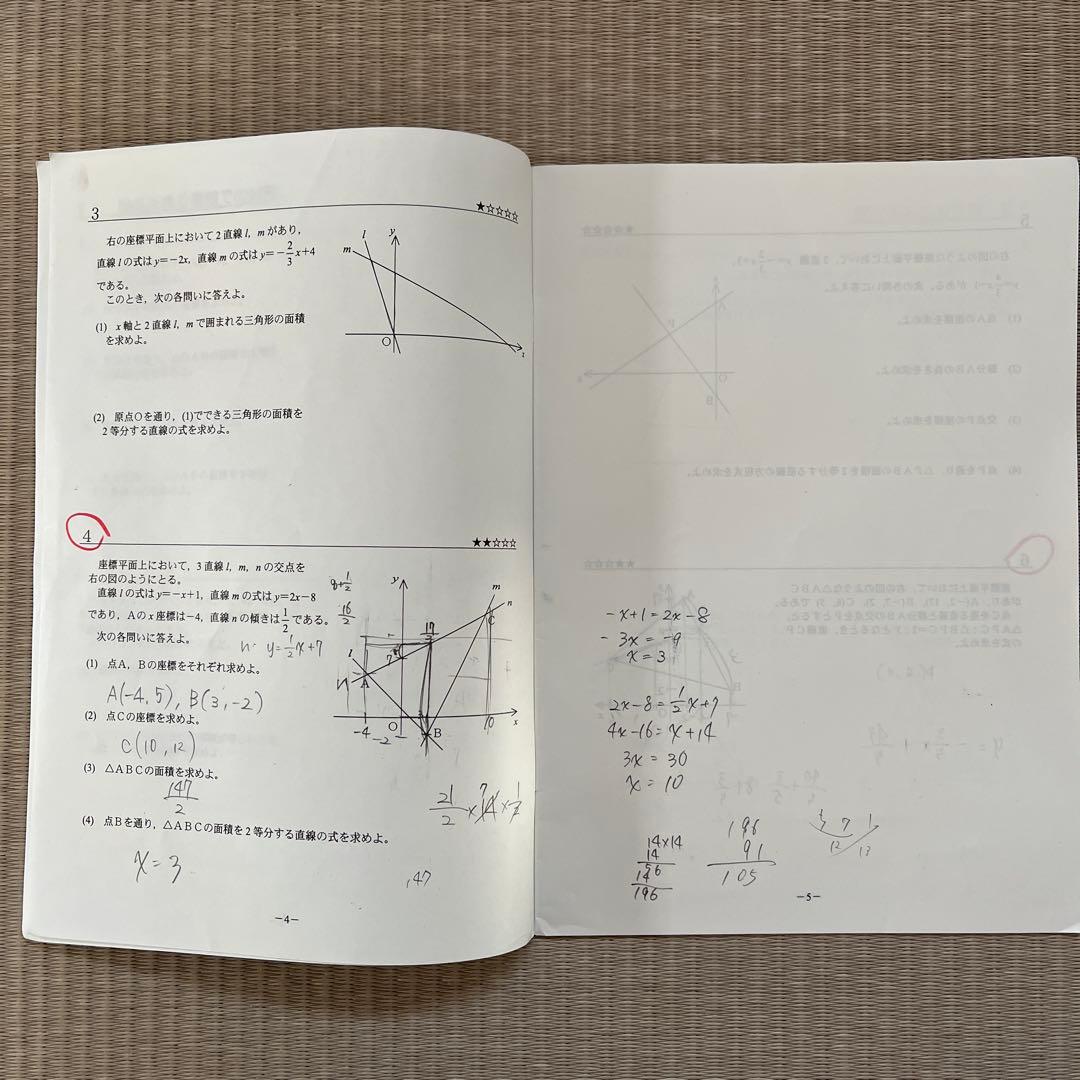 3
★☆☆☆☆
右の座標平面上において2直線l, mがあり,
直線lの式はy=−2x, 直線mの式はy=−2/3x+4
である。
このとき, 次の各問いに答えよ。
(1) x軸と2直線l, mで囲まれる三角形の面積
を求めよ。
l
y
m
O
x
(2) 原点Oを通り, (1)でできる三角形の面積を
2等分する直線の式を求めよ。
4
★★☆☆☆
座標平面上において, 3直線l, m, nの交点を
右の図のようにとる。
直線lの式はy=−x+1, 直線mの式はy=2x−8
であり, Aのx座標は−4, 直線nの傾きは1/2である。
次の各問いに答えよ。
n: y=1/2x+7
(1) 点A, Bの座標をそれぞれ求めよ。
A(-4, 5), B(3, -2)
(2) 点Cの座標を求めよ。
C(10, 12)
(3) △ABCの面積を求めよ。
147/2
21/2×14×1/2
7
(4) 点Bを通り, △ABCの面積を2等分する直線の式を求めよ。
x=3
147
16/2
17/2
y
m
n
C
l
7
A
O
x
-4
-2
B
10
−4−
-x+1=2x-8
-3x=-9
x=3
2x-8=1/2x+7
4x-16=x+14
3x=30
x=10
14×14
14
56
14
196
196
91
105
7 1
12
13
−5−